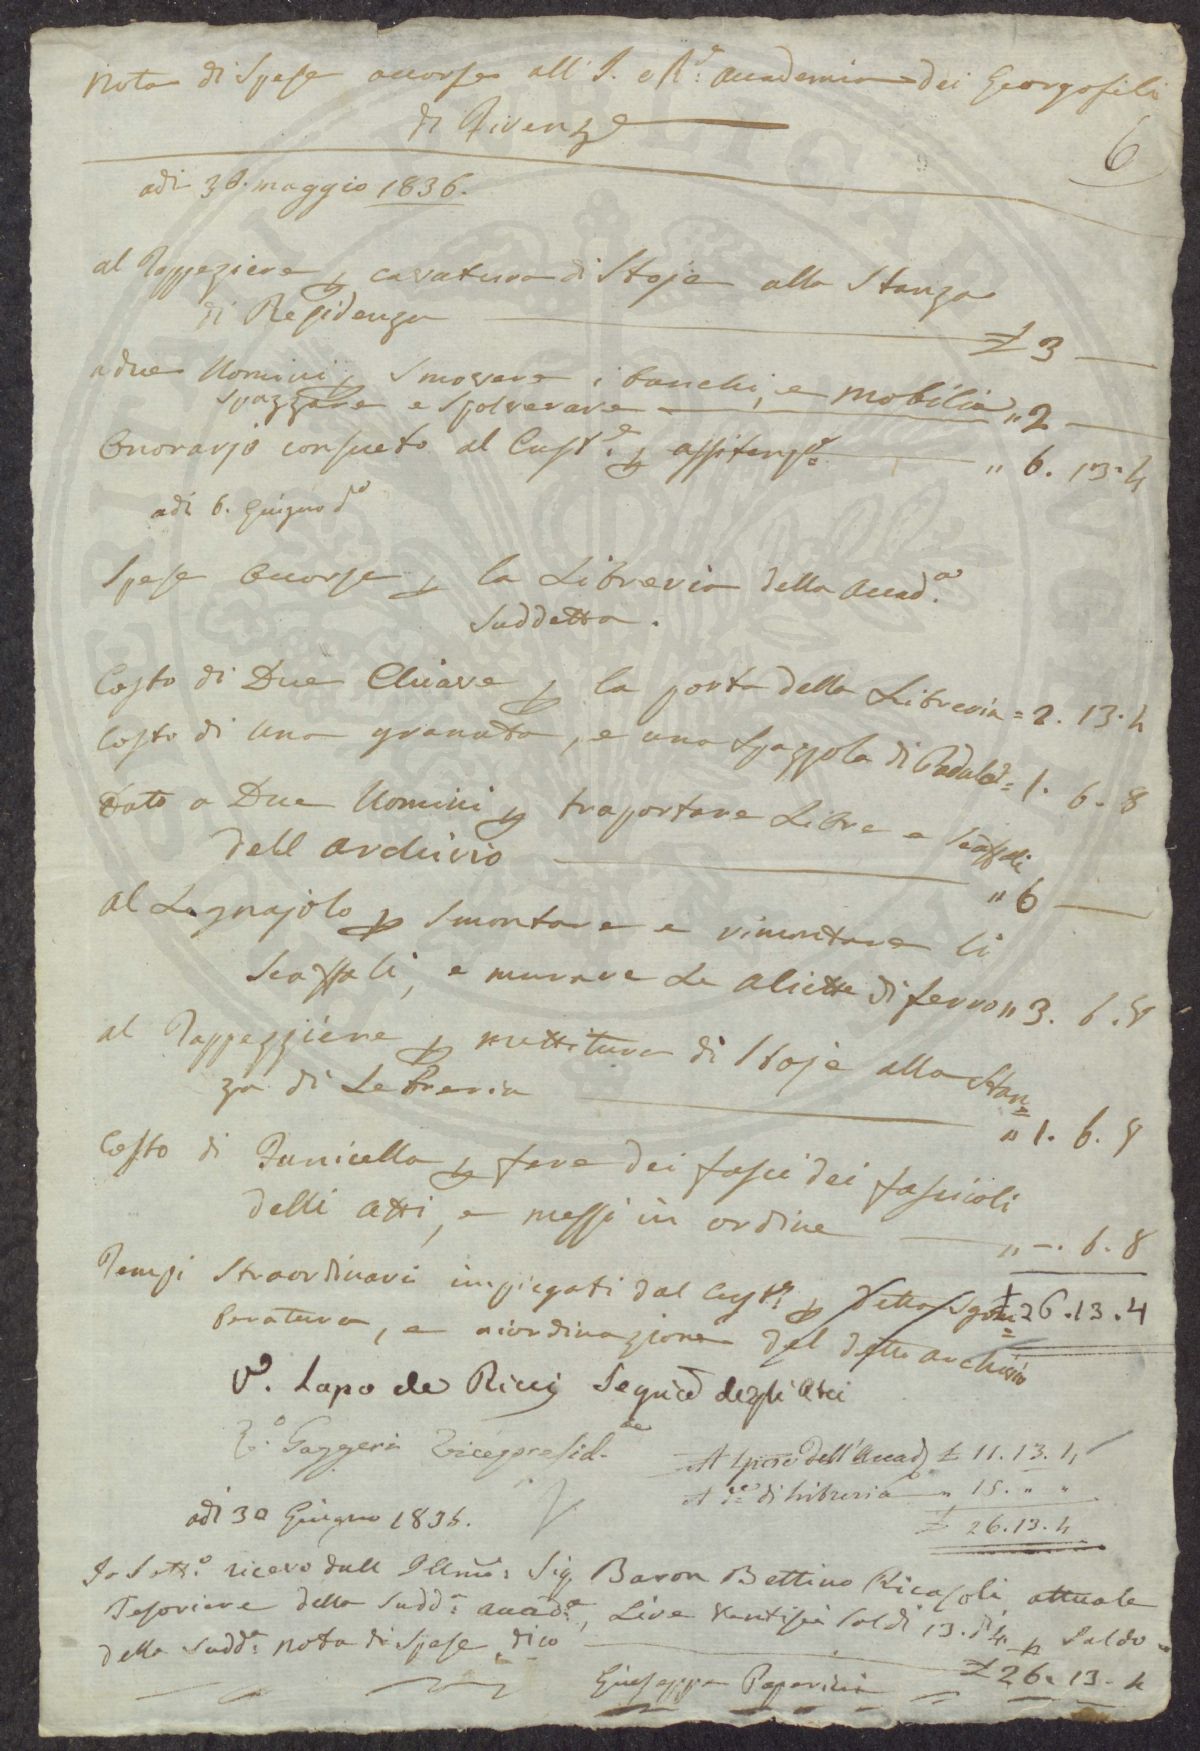 Nota di Spese occorse all' I. e R.e Accademia dei Georgofili
di Firenze
6
adì 30. maggio 1836.
al Tappeziere p cavatura di Stoje alla Stanza
di Residenza £ 3 —
a due Uomini p Smovere i banchi, e mobilia
Spazzare e Spolverare " 2 —
Onorario consueto al Cust.e p assistenza " 6. 13. 4
adì 6. Giugno d.o
Spese Occorse p la Libreria della Accad.a
Suddetta.
Costo di Due Chiave p la porta della Libreria = 2. 13. 4
Costo di una granata, e una Spazzola di Padule = 1. 6. 8
Dato a Due Uomini p traportare Libre e Scaffali
dell archivio " 6 —
al Legnajolo p Smontare e rimontare li
Scaffali, e murare Le aliette di ferro " 3. 6. 8
al Tappezziere p mettitura di Stoje alla Stan=
za di Lebreria " 1. 6. 8
Costo di Funicella p fare dei fasci dei fascicoli
delli atti, e messi in ordine " —. 6. 8
£ 26. 13. 4
Tempi Straordinari impiegati dal Cust.e p detta Sgom=
beratura, e riordinazione del detto archivio
V.o Lapo de Ricci Seg.rio degli Atti
V.o Gazzeri Vicepresid.te
A spese dell'Accad.a £ 11. 13. 4
A d.e di Libreria " 15. " "
£ 26. 13. 4
adì 30 Giugno 1836.
Io Sott.o ricevo dall Illmo: Sig. Baron Bettino Ricasoli attuale
Tesoriere della Sudd.a accad.a, Lire Ventisei Soldi 13. di 4. p Saldo
della Sudd.a nota di Spese, dico £ 26. 13. 4
Giuseppe Paperini